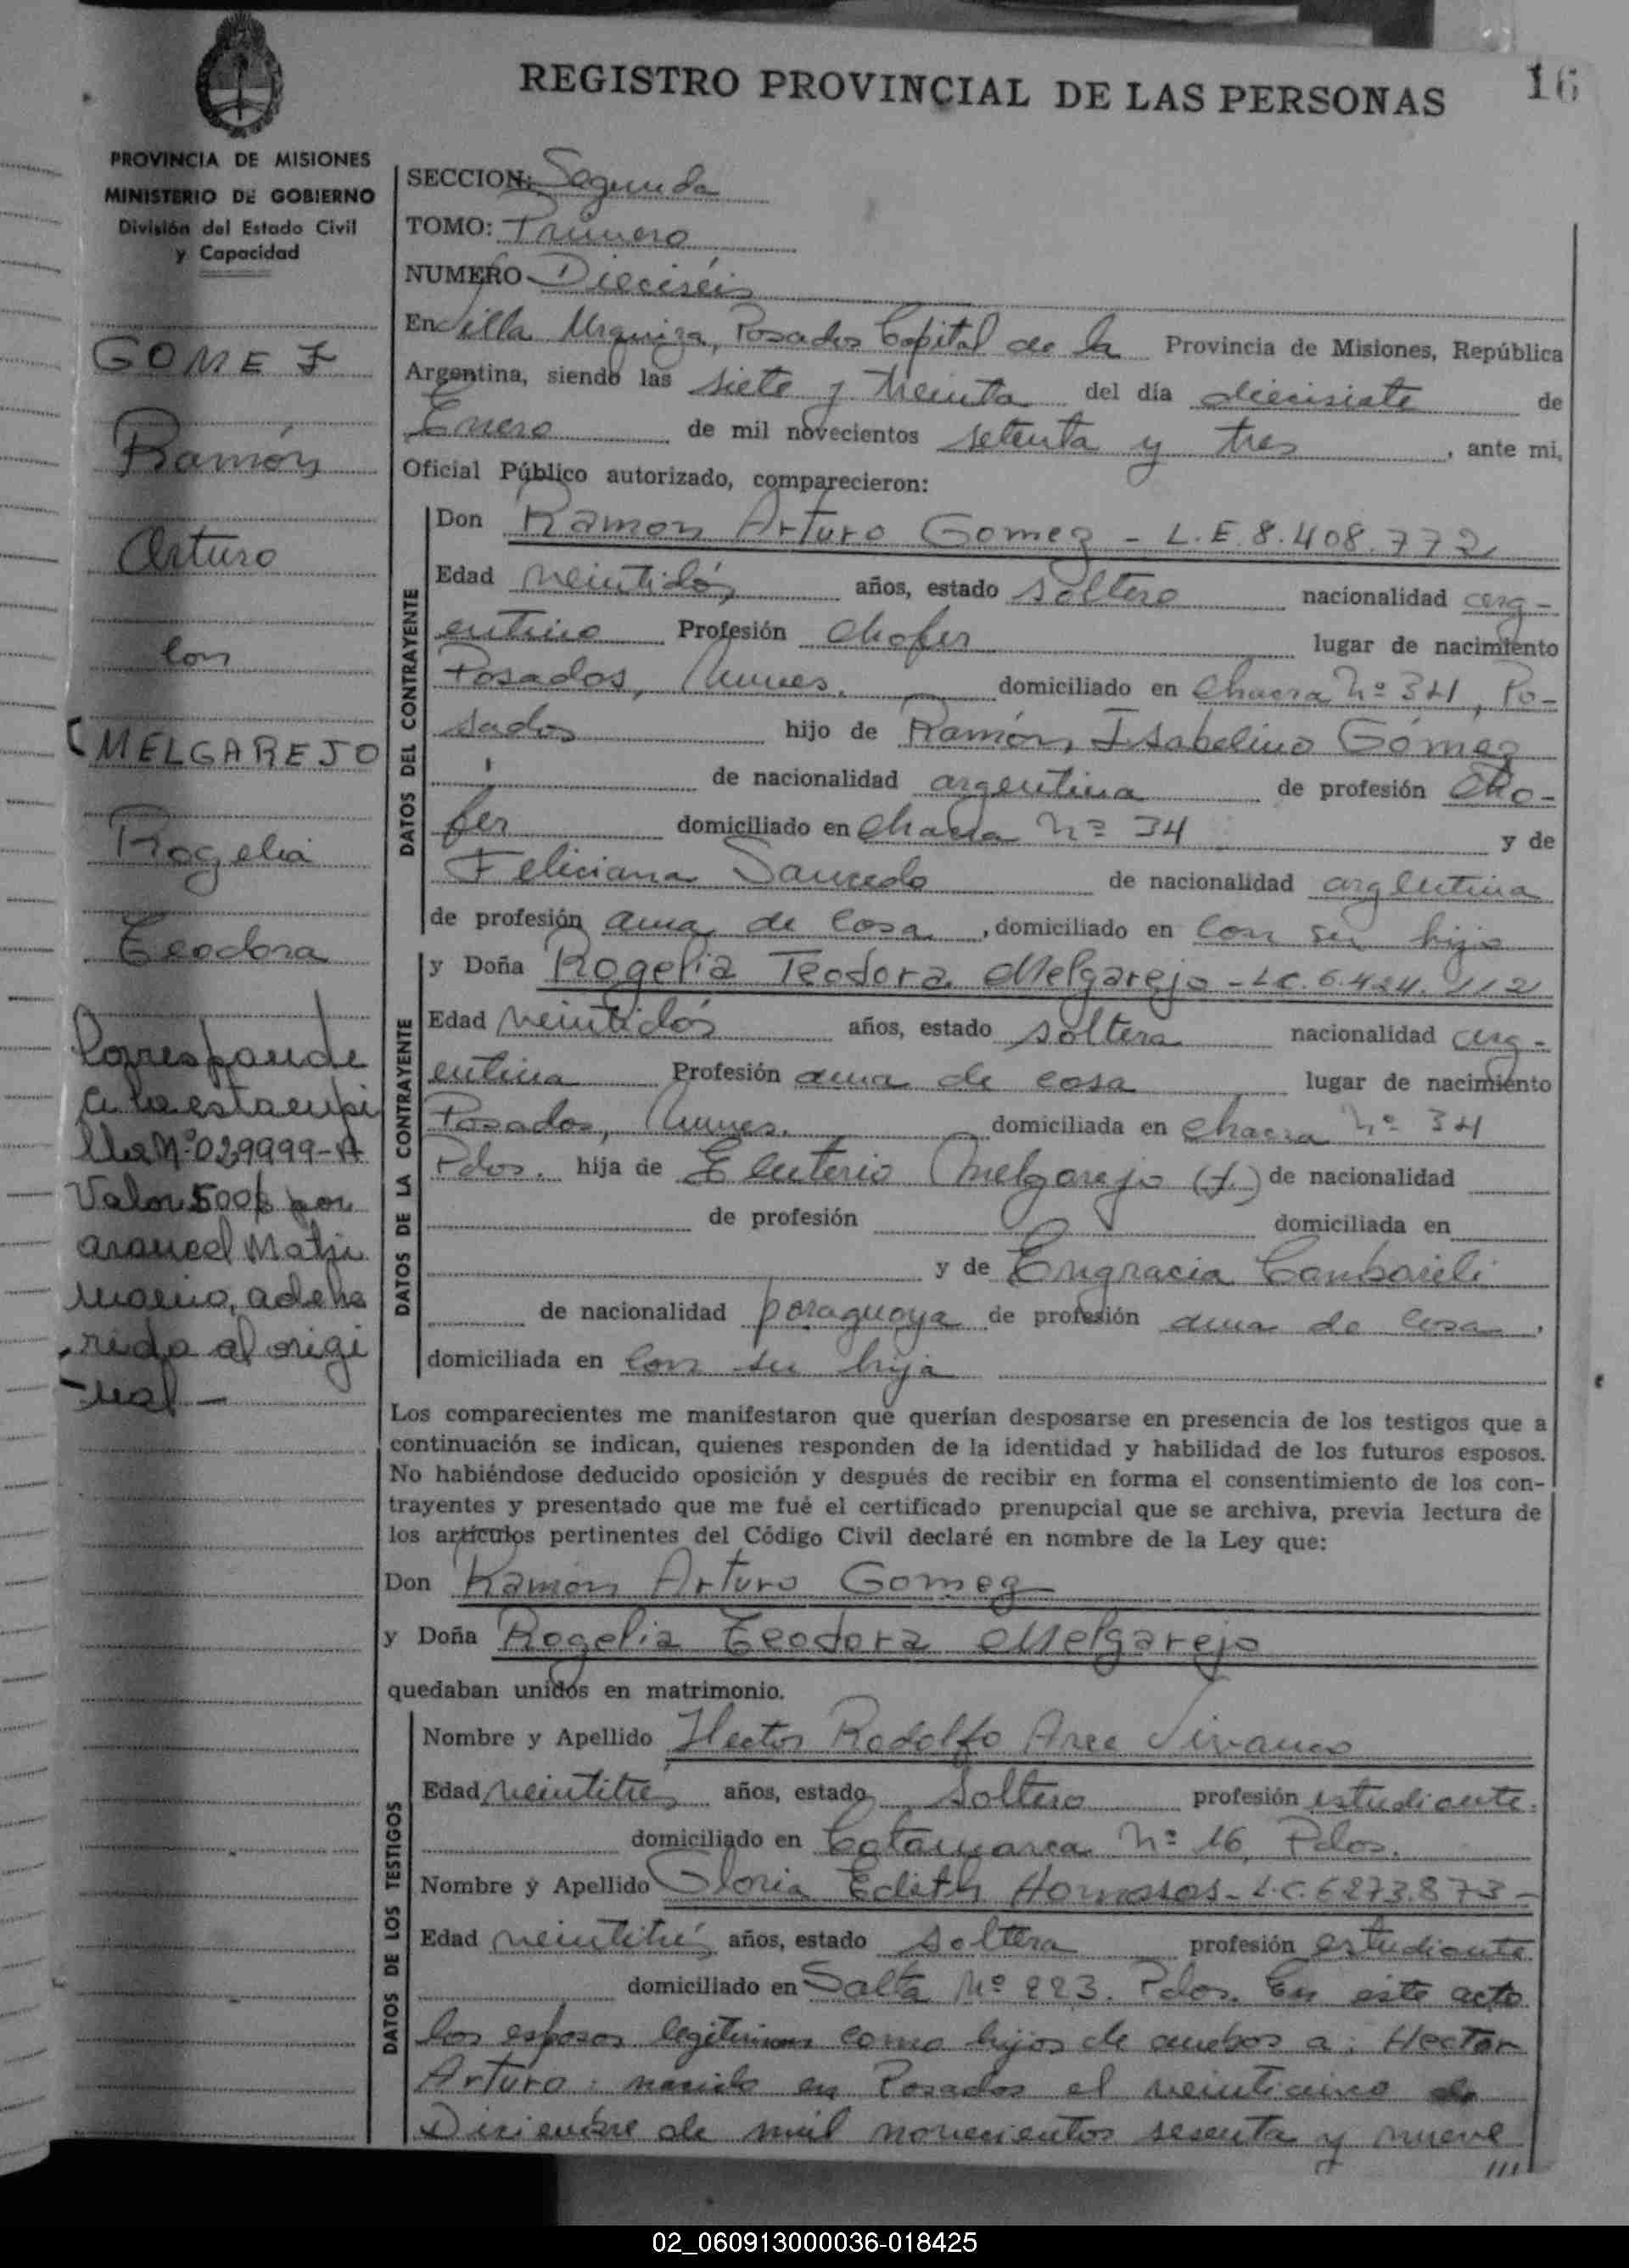 16
REGISTRO PROVINCIAL DE LAS PERSONAS
PROVINCIA DE MISIONES
MINISTERIO DE GOBIERNO
División del Estado Civil
y Capacidad
GOMEZ
Ramón
Arturo
con
MELGAREJO
Rogelia
Teodora
Corresponde
a la estampi
lla Nº 029999-A
Valor 500$ por
arancel Matri
monio, adehe
rida al origi
-nal-
SECCION: Segunda
TOMO: Primero
NUMERO Dieciséis
En Villa Urquiza, Posadas Capital de la Provincia de Misiones, República
Argentina, siendo las siete y treinta del día diecisiete de
Enero de mil novecientos setenta y tres, ante mi,
Oficial Público autorizado, comparecieron:
DATOS DEL CONTRAYENTE
Don Ramon Arturo Gomez - L.E. 8.408.772
Edad veintidós años, estado soltero nacionalidad arg-
entino Profesión chofer lugar de nacimiento
Posadas, Mnes. domiciliado en Chacra nº 34, Po-
sadas hijo de Ramón Isabelino Gómez
de nacionalidad argentina de profesión cho-
fer domiciliado en chacra nº 34 y de
Feliciana Saucedo de nacionalidad argentina
de profesión ama de casa, domiciliado en con su hijo
DATOS DE LA CONTRAYENTE
y Doña Rogelia Teodora Melgarejo - L.C. 6.424.112
Edad veintidós años, estado soltera nacionalidad arg-
entina Profesión ama de casa lugar de nacimiento
Posadas, Mnes. domiciliada en chacra nº 34
Pdas. hija de Eleuterio Melgarejo (f.) de nacionalidad
de profesión domiciliada en
y de Engracia
de nacionalidad paraguaya de profesión ama de casa,
domiciliada en con su hija
Los comparecientes me manifestaron que querían desposarse en presencia de los testigos que a
continuación se indican, quienes responden de la identidad y habilidad de los futuros esposos.
No habiéndose deducido oposición y después de recibir en forma el consentimiento de los con-
trayentes y presentado que me fué el certificado prenupcial que se archiva, previa lectura de
los artículos pertinentes del Código Civil declaré en nombre de la Ley que:
Don Ramón Arturo Gomez
y Doña Rogelia Teodora Melgarejo
quedaban unidos en matrimonio.
DATOS DE LOS TESTIGOS
Nombre y Apellido Hector Rodolfo Arce Vivanco
Edad veintitrés años, estado soltero profesión estudiante.
domiciliado en Catamarca nº 16, Pdas.
Nombre y Apellido Gloria Edith - L.C. 6273.873-
Edad veintitrés años, estado soltera profesión estudiante
domiciliado en Salta Nº 223. Pdas. En este acto
los esposos legitiman como hijos de ambos a: Hector
Arturo: nacido en Posadas el veinticinco de
Diciembre de mil novecientos sesenta y nueve
///
02_060913000036-018425